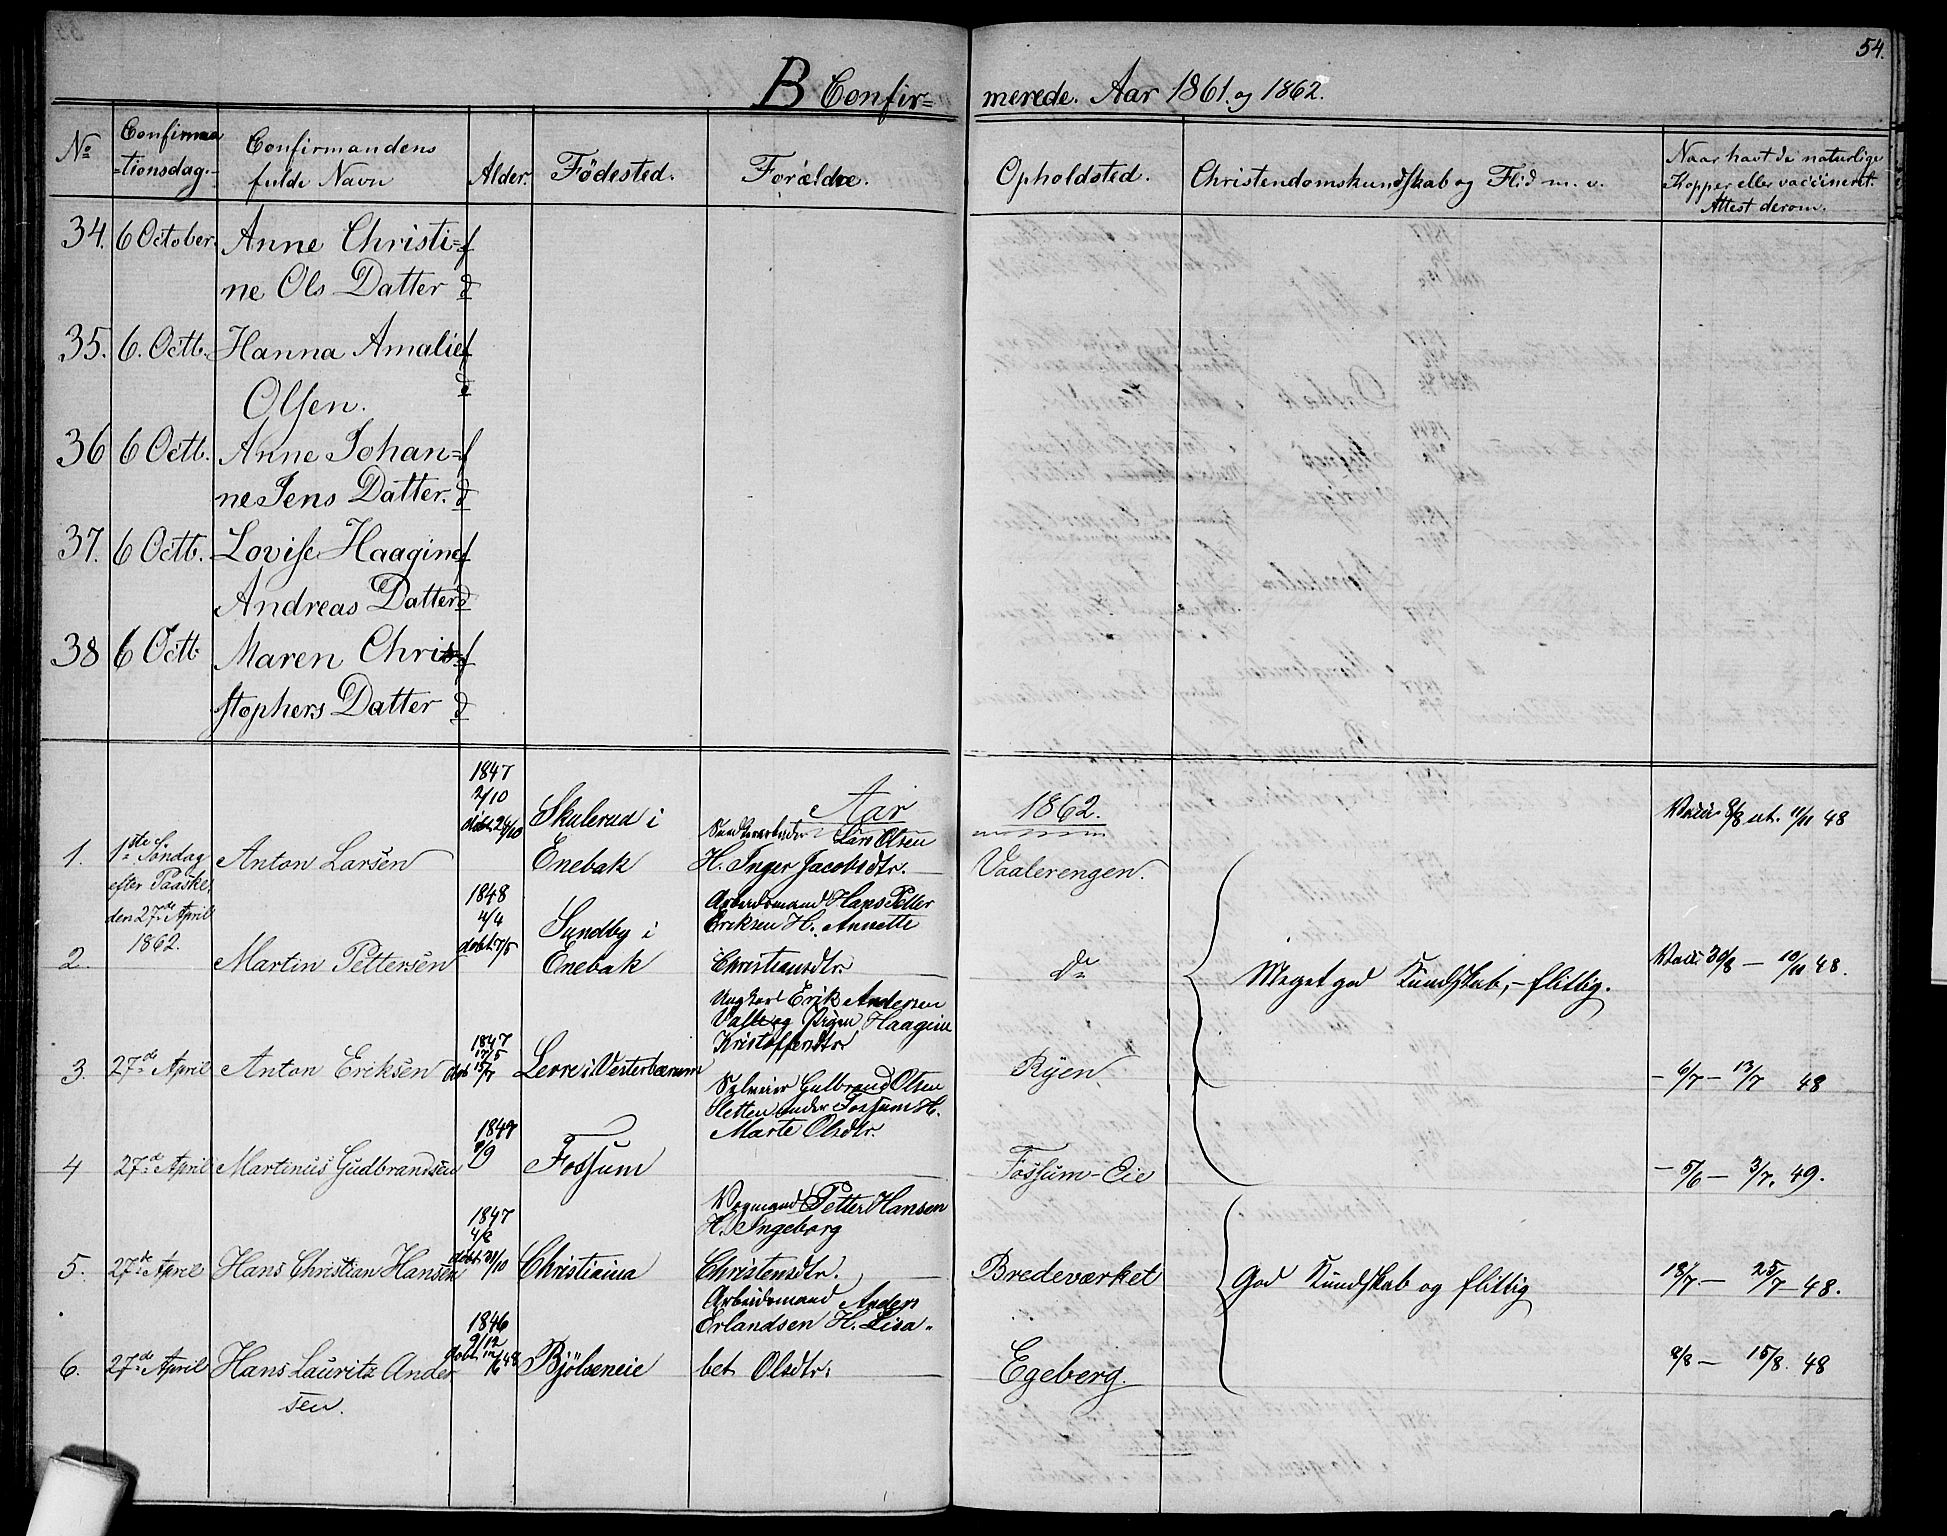 54.
B Confir= merede. Aar 1861. og 1862.
No
Confirma
=tionsdag.
Confirmandens
fulde Navn
Alder.
Födested.
Forældre.
Opholdsted.
Christendomskundskab og Flid m. v.
Naar havt de naturlige
Kopper eller vaccineret.
Attest derom.
34. 6 October. Anne Christi=
ne Ols Datter
35. 6. Octb. Hanna Amalie
Olsen.
36 6 Octb. Anne Johan=
ne Jens Datter.
37. 6 Octb. Lovise Haagine
Andreas Datter
38 6 Octb Maren Chri
stophers Datter
Aar 1862.
1. 1ste Söndag
efter Paaske,
den 27de April
1862.
Anton Larsen
1847
2/10
döbt 24/10
Skulerud i
Enebak
Lars Olsen
H. Inger Jacobsdtr.
Vaalerengen.
Vacc. 8/8 att. 11/11 48
2 Martin Pettersen
1848
4/4
döbt 7/5
Sundby i
Enebak
Arbeidsmand Hans Petter
Eriksen H. Annette
Christiansdtr
do
Meget god Kundskab, - flittig.
Vacc. 30/8 — 10/11 48.
3. 27de April Anton Eriksen
1847
17/5
döb 18/7
Vesterbærum
Ungkarl Erik Andersen
og Pigen Haagine
Kristoffersdtr
Ryen.
— 6/7 — 13/7 48
4 27de April Martinus Gudbrandsen
9/9
Fossum
Gulbrand Olsen
Sletten under Fossum H.
Marte Olsdtr.
Fossum-Eie
— 5/6 — 3/7. 49.
5. 27de April Hans Christian Hansen
1847
döbt 31/10
Christiania
Petter Hansen
H. Ingeborg
Christensdtr.
Bredeværket
God Kundskab og flittig
18/7 — 25/7 — 48.
6. 27de April Hans Lauritz Ander
sen.
1846
9/12
Bjölseneie
Arbeidsmand Anders
Erlandsen H. Lisa-
bet Olsdtr.
Egeberg.
8/8 — 15/8. 48